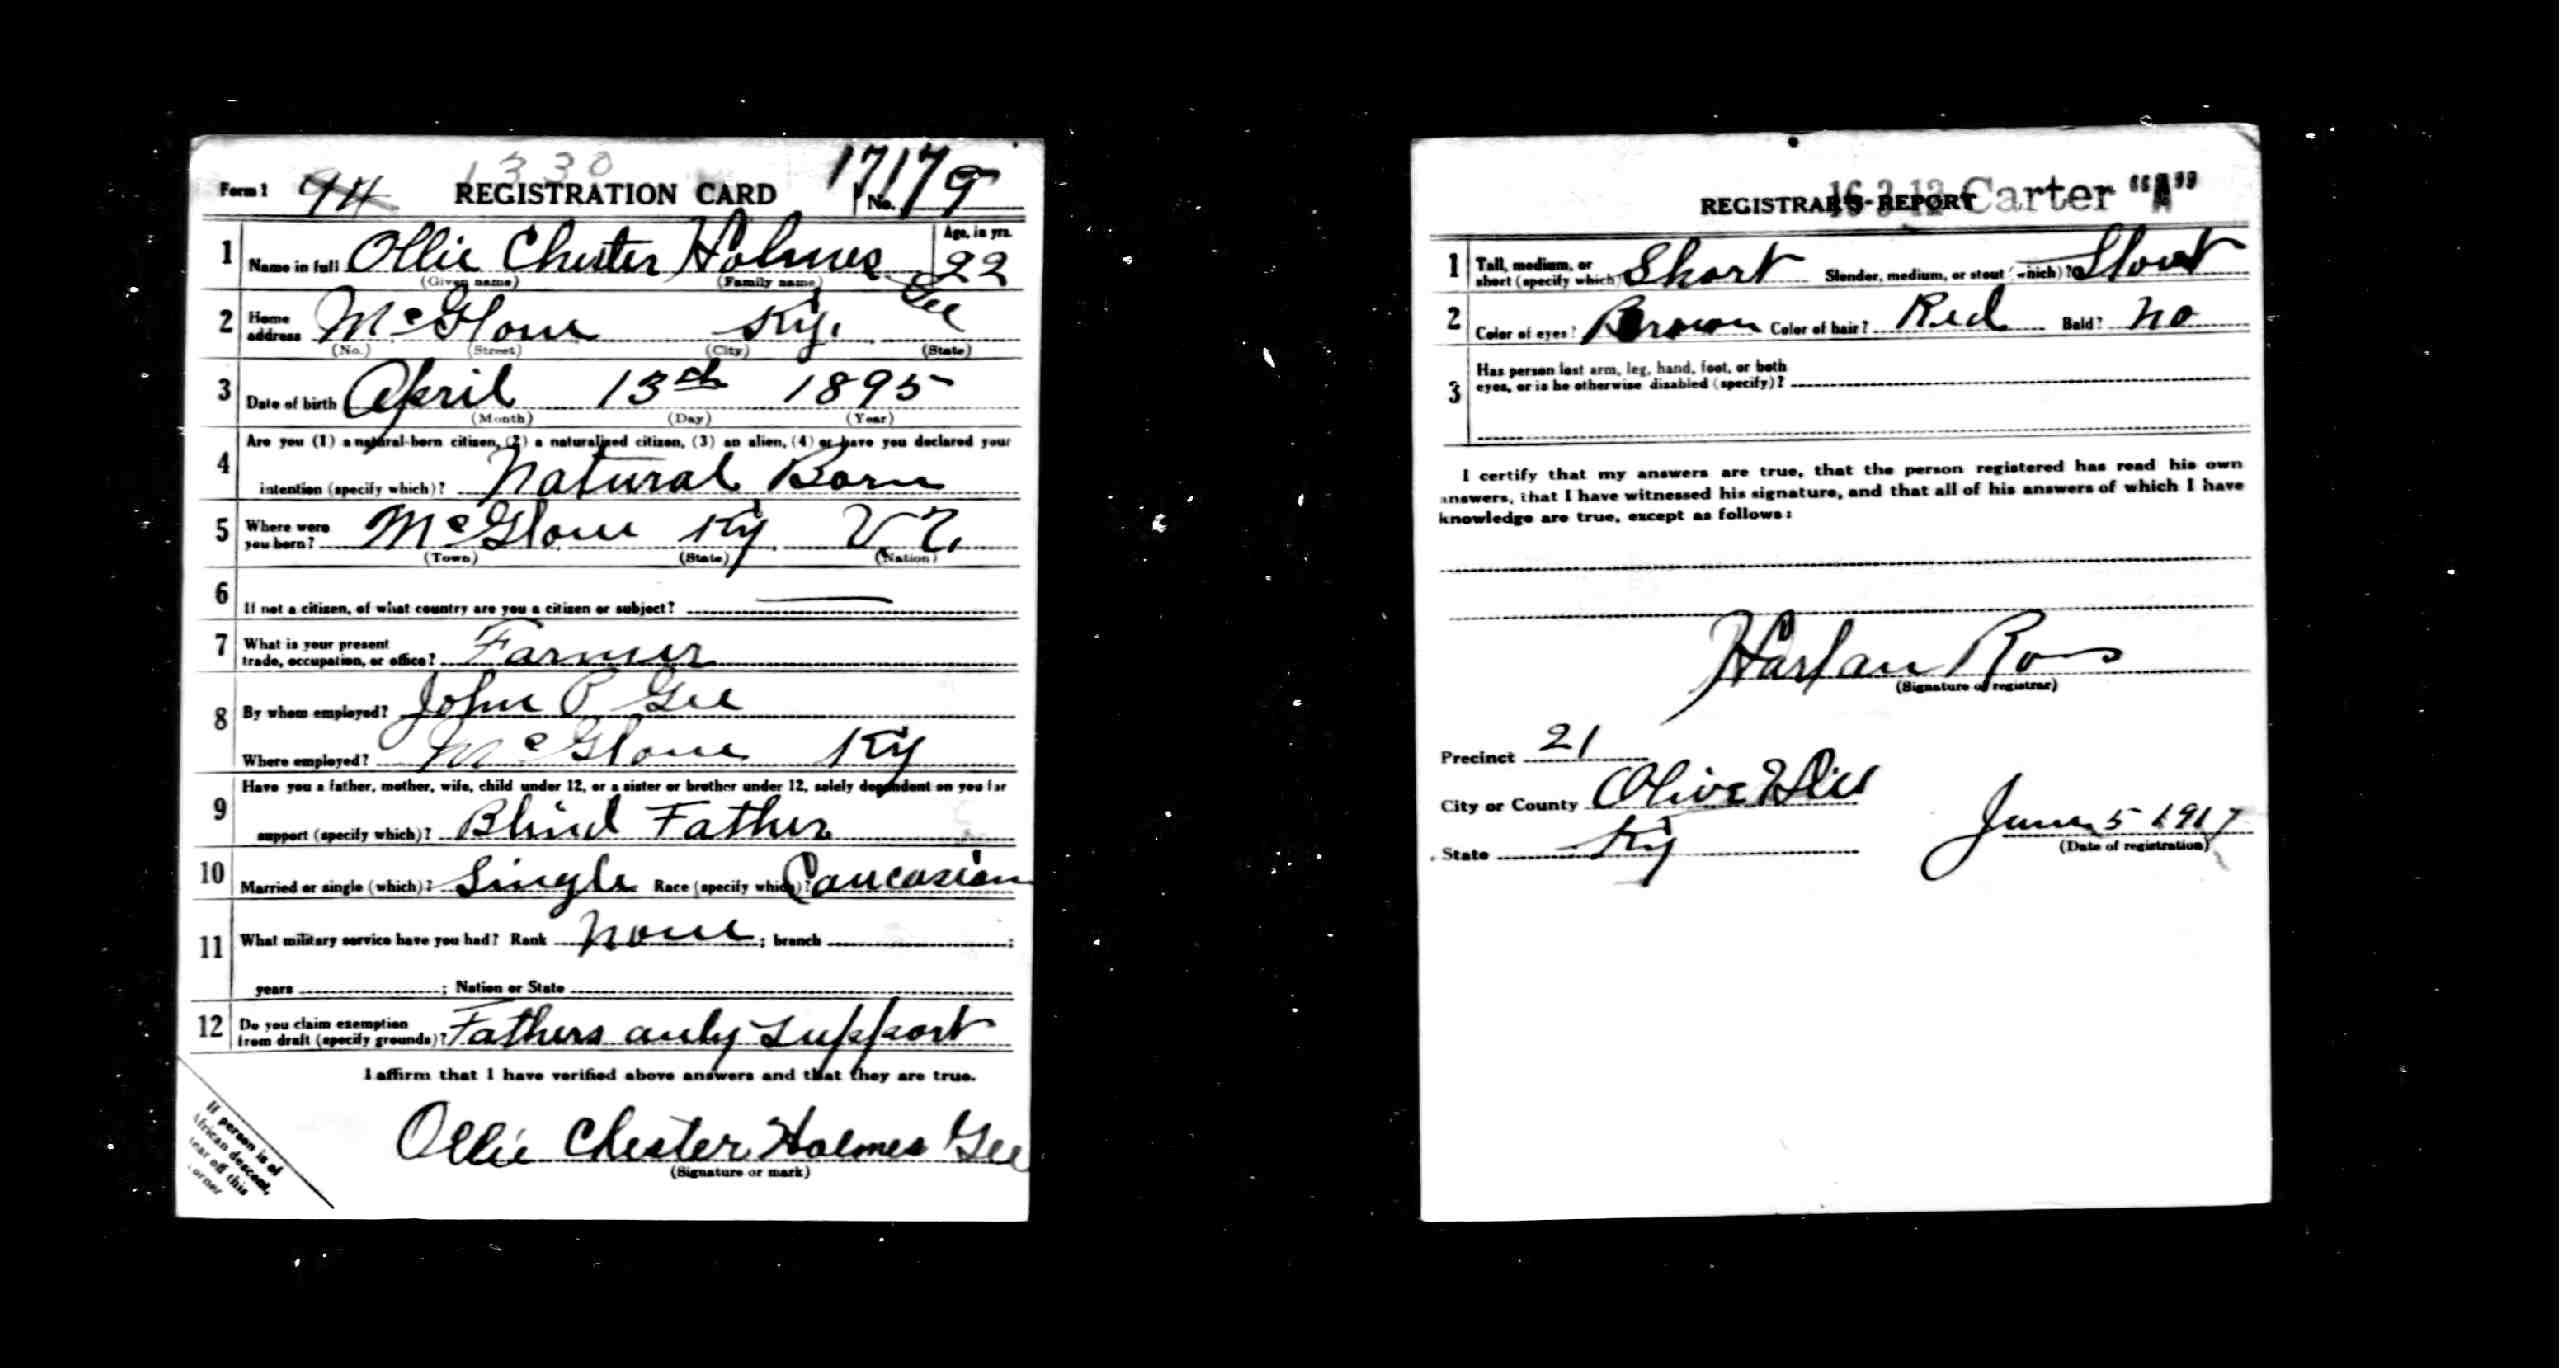 1330
Form 1 94 REGISTRATION CARD No. 17179
1 Name in full Ollie Chester Holmes Gee Age, in yrs. 22
(Given name) (Family name)
2 Home address McGlone Ky.
(No.) (Street) (City) (State)
3 Date of birth April 13th 1895
(Month) (Day) (Year)
4 Are you (1) a natural-born citizen, (2) a naturalized citizen, (3) an alien, (4) or have you declared your
intention (specify which)? Natural Born
5 Where were you born? McGlone Ky
(Town) (State) (Nation)
6 If not a citizen, of what country are you a citizen or subject?
7 What is your present trade, occupation, or office? Farmer
8 By whom employed? John P Gee
Where employed? McGlone Ky
9 Have you a father, mother, wife, child under 12, or a sister or brother under 12, solely dependent on you for
support (specify which)? Blind Father
10 Married or single (which)? Single Race (specify which)? Caucasian
11 What military service have you had? Rank none ; branch ;
years ; Nation or State
12 Do you claim exemption from draft (specify grounds)? Fathers only support
I affirm that I have verified above answers and that they are true.
Ollie Chester Holmes Gee
(Signature or mark)
If person is of
African descent,
tear off this
corner
REGISTRAR'S REPORT 16-3-12 Carter "A"
1 Tall, medium, or short (specify which)? Short Slender, medium, or stout (which)? Stout
2 Color of eyes? Brown Color of hair? Red Bald? no
3 Has person lost arm, leg, hand, foot, or both
eyes, or is he otherwise disabled (specify)?
I certify that my answers are true, that the person registered has read his own
answers, that I have witnessed his signature, and that all of his answers of which I have
knowledge are true, except as follows:
Harlan Ross
(Signature of registrar)
Precinct 21
City or County Olive Hill
State Ky June 5 1917
(Date of registration)